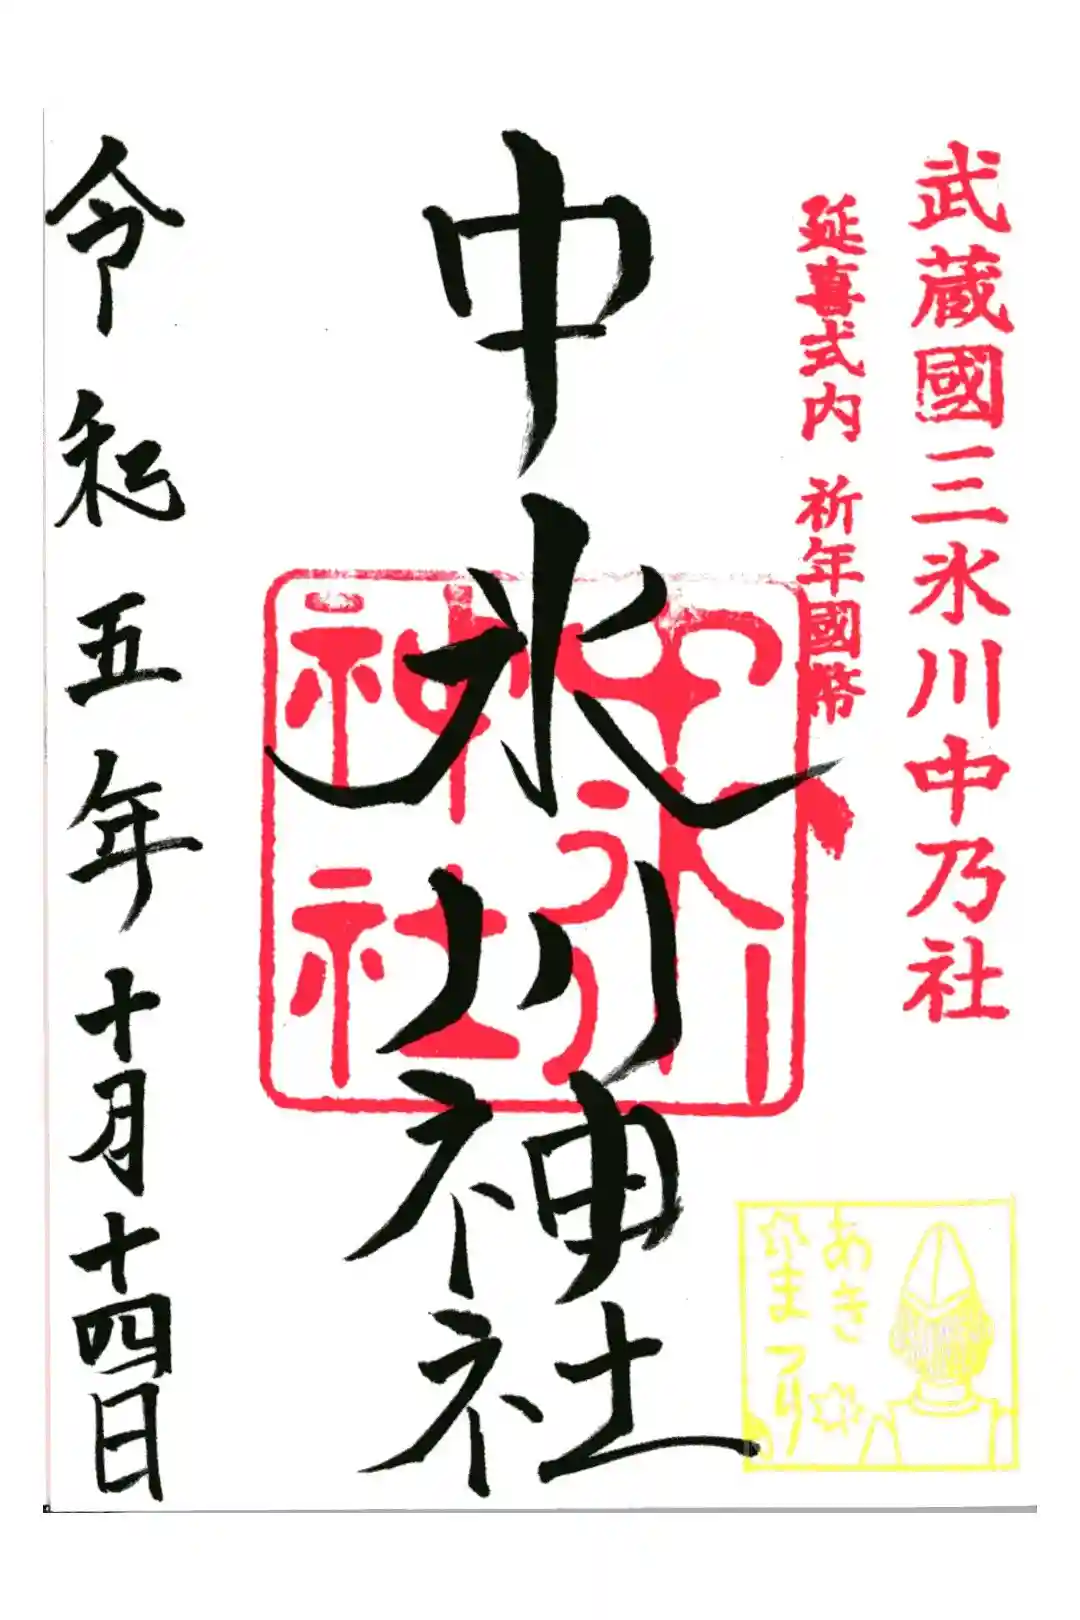 武蔵國三氷川中乃社
延喜式内 祈年國幣
中氷川神社
中氷川
神社
令和五年十月十四日
あき
まつり